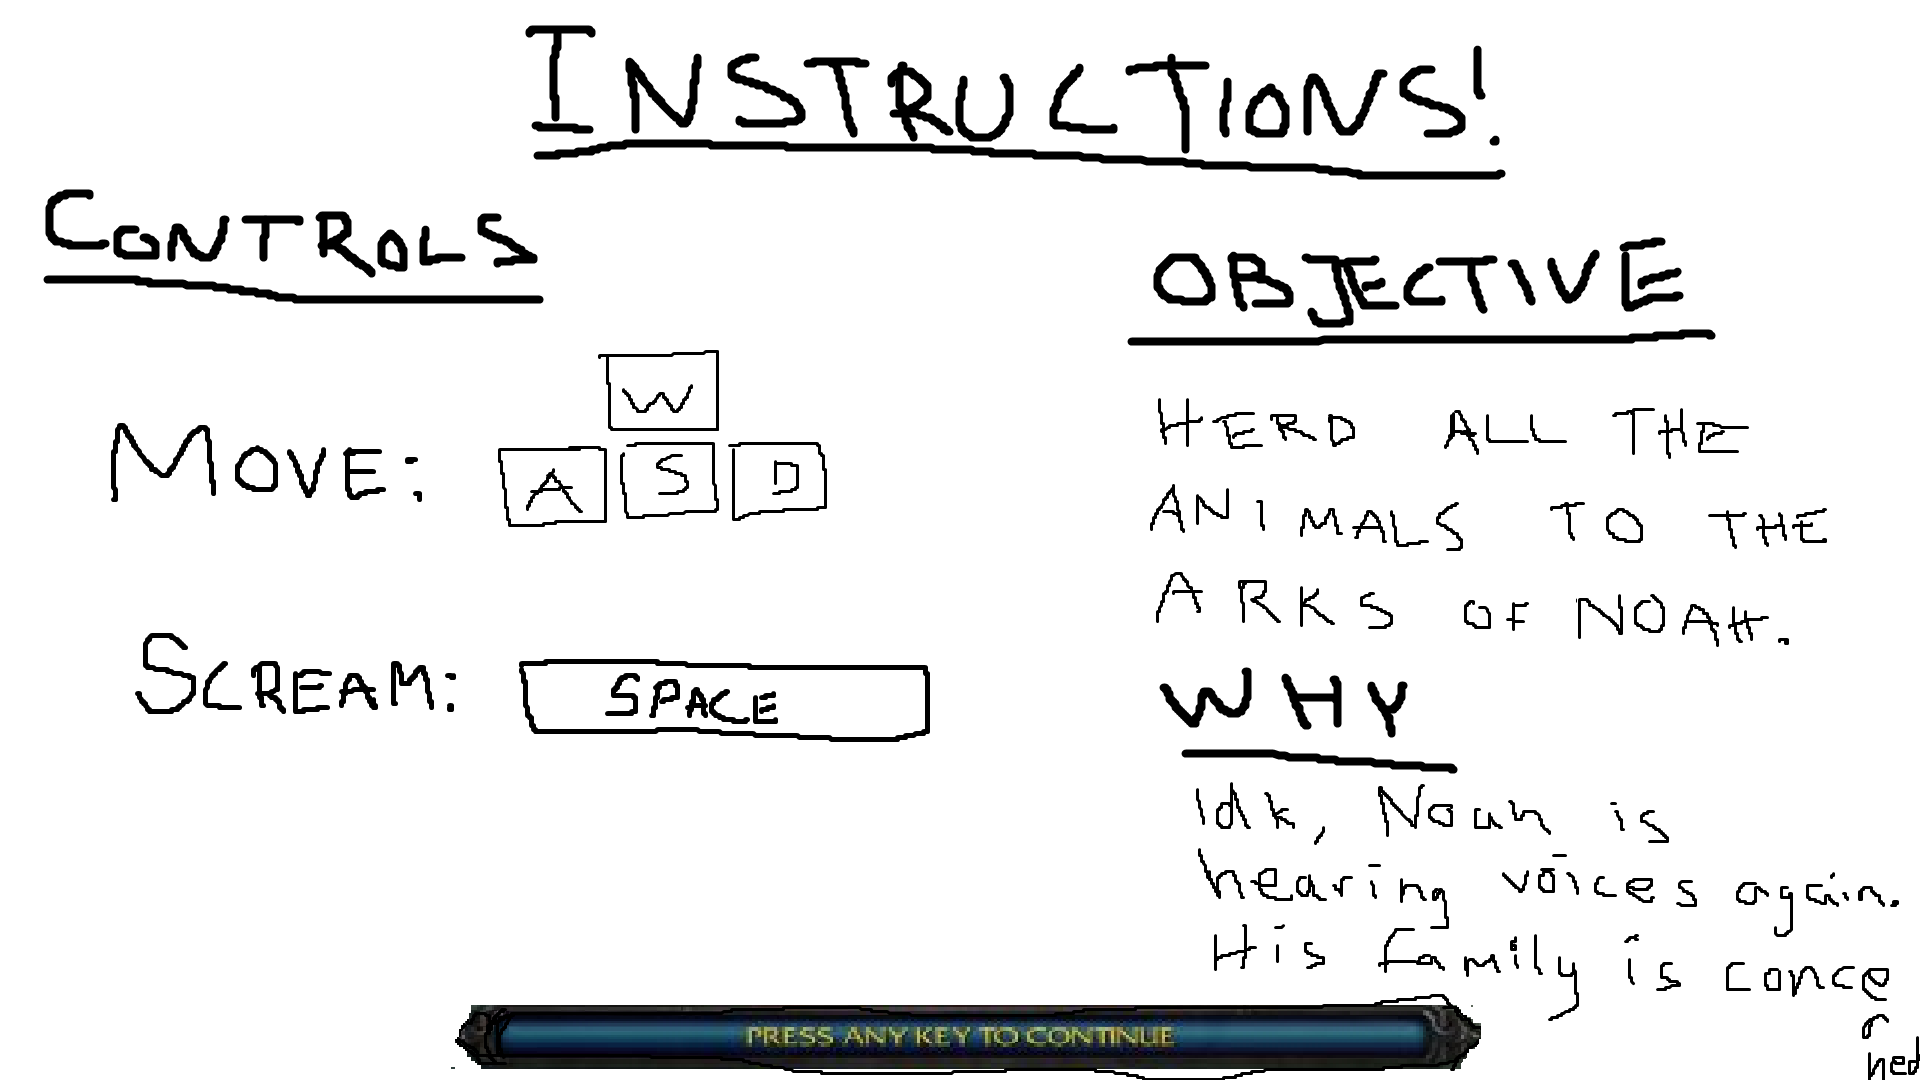 INSTRUCTIONS!
CONTROLS
MOVE:
W
A S D
SCREAM: SPACE
OBJECTIVE
HERD ALL THE
ANIMALS TO THE
ARKS OF NOAH.
WHY
Idk, Noah is
hearing voices again.
His family is conce
r
ned
PRESS ANY KEY TO CONTINUE